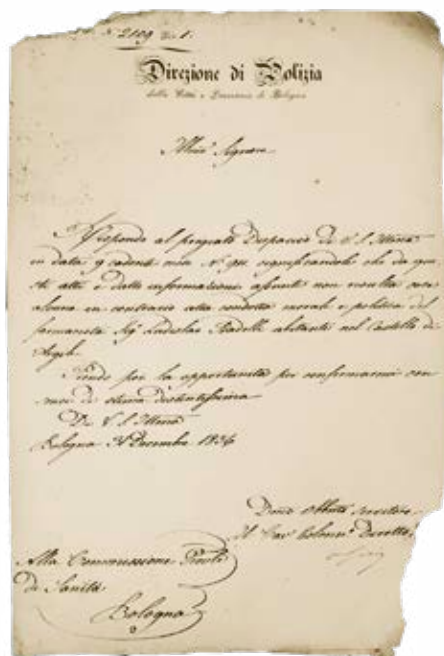 N. 2109
Direzione di Polizia
della Città e Provincia di Bologna
Illmo Signore
Rispondo al pregiato Dispaccio di V. S. Illma
in data 9 cadente mese N. 911 significandole che da que-
sti atti e dalle informazioni assunte non risulta cosa
alcuna in contrario alla condotta morale e politica del
farmacista Sig. Ladislao abitante nel Castello di
Argile.
per la opportunità per confermarmi con
sensi di stima distintissima
Di V. S. Illma
Bologna Decembre 1834
Devmo Obblmo servitore
Il Cav. Colonn. Dirett.
Alla Commissione Provle
di Sanità
Bologna